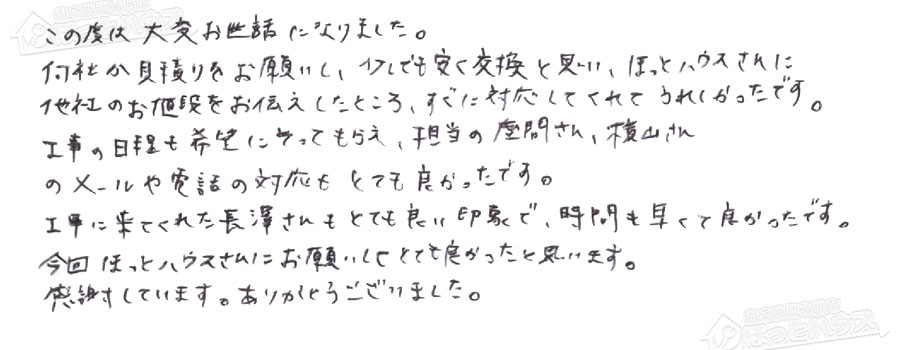 この度は大変お世話になりました。
何社か見積りをお願いし、少しでも安く交換と思い、ほっとハウスさんに
他社のお値段をお伝えしたところ、すぐに対応してくれてうれしかったです。
工事の日程も希望にそってもらえ、担当の座間さん、横山さん
のメールや電話の対応もとても良かったです。
工事に来てくれた長澤さんもとても良い印象で、時間も早くて良かったです。
今回ほっとハウスさんにお願いしてとても良かったと思います。
感謝しています。ありがとうございました。
ほっとハウス